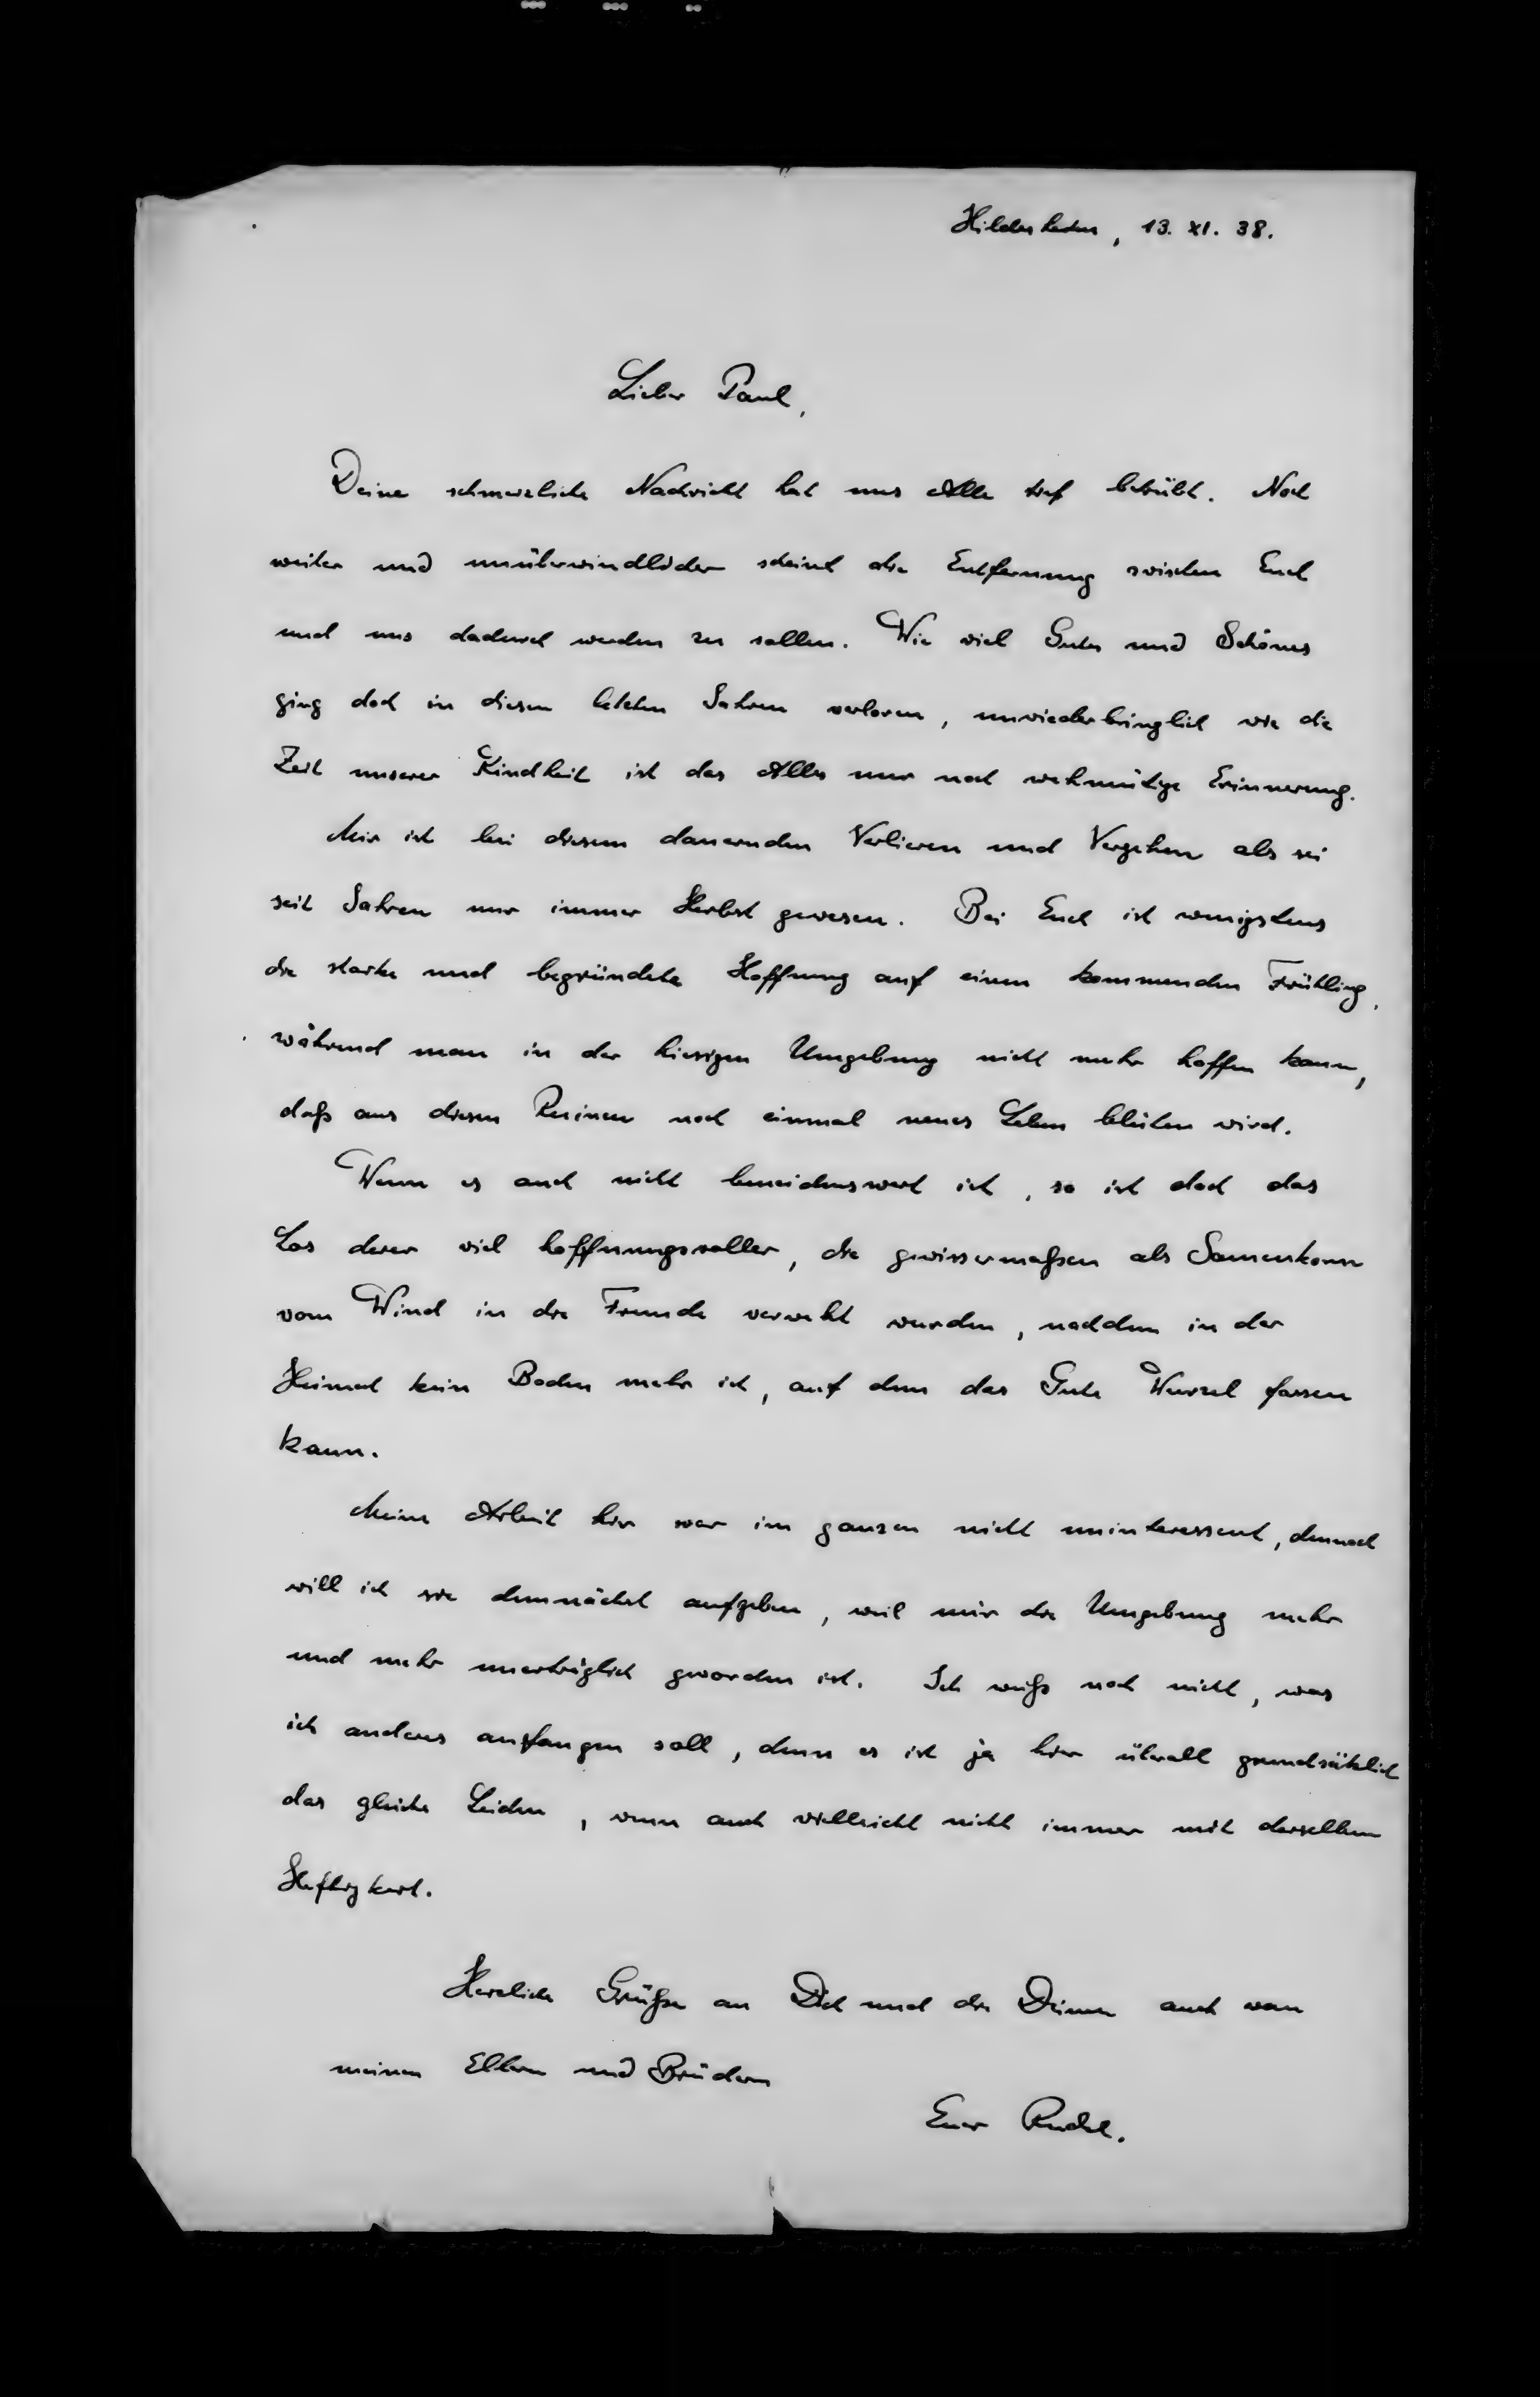 Hildesheim, 13. XI. 38.
Lieber Paul,
Deine schmerzliche Nachricht hat uns Alle tief betrübt. Noch
weiter und unüberwindlicher scheint die Entfernung zwischen Euch
und uns dadurch werden zu sollen. Wie viel Gutes und Schönes
ging doch in diesen letzten Jahren verloren, unwiederbringlich wie die
Zeit unserer Kindheit ist das Alles nur noch wehmütige Erinnerung.
Mir ist bei diesem dauernden Verlieren und Vergehen als sei
seit Jahren nur immer Herbst gewesen. Bei Euch ist wenigstens
die starke und begründete Hoffnung auf einen kommenden Frühling,
während man in der hiesigen Umgebung nicht mehr hoffen kann,
daß aus diesen Ruinen noch einmal neues Leben blühen wird.
Wenn es auch nicht beneidenswert ist, so ist doch das
Los derer viel hoffnungsvoller, die gewissermaßen als Samenkorn
vom Wind in die Fremde verweht wurden, nachdem in der
Heimat kein Boden mehr ist, auf dem das Gute Wurzel fassen
kann.
Meine Arbeit hier war im ganzen nicht uninteressant, dennoch
will ich sie demnächst aufgeben, weil mir die Umgebung mehr
und mehr unerträglich geworden ist. Ich weiß noch nicht, was
ich anderes anfangen soll, denn es ist ja hier überall grundsätzlich
das gleiche Leiden, wenn auch vielleicht nicht immer mit derselben
Heftigkeit.
Herzliche Grüße an Dich und die Deinen auch von
meinen Eltern und Brüdern
Euer